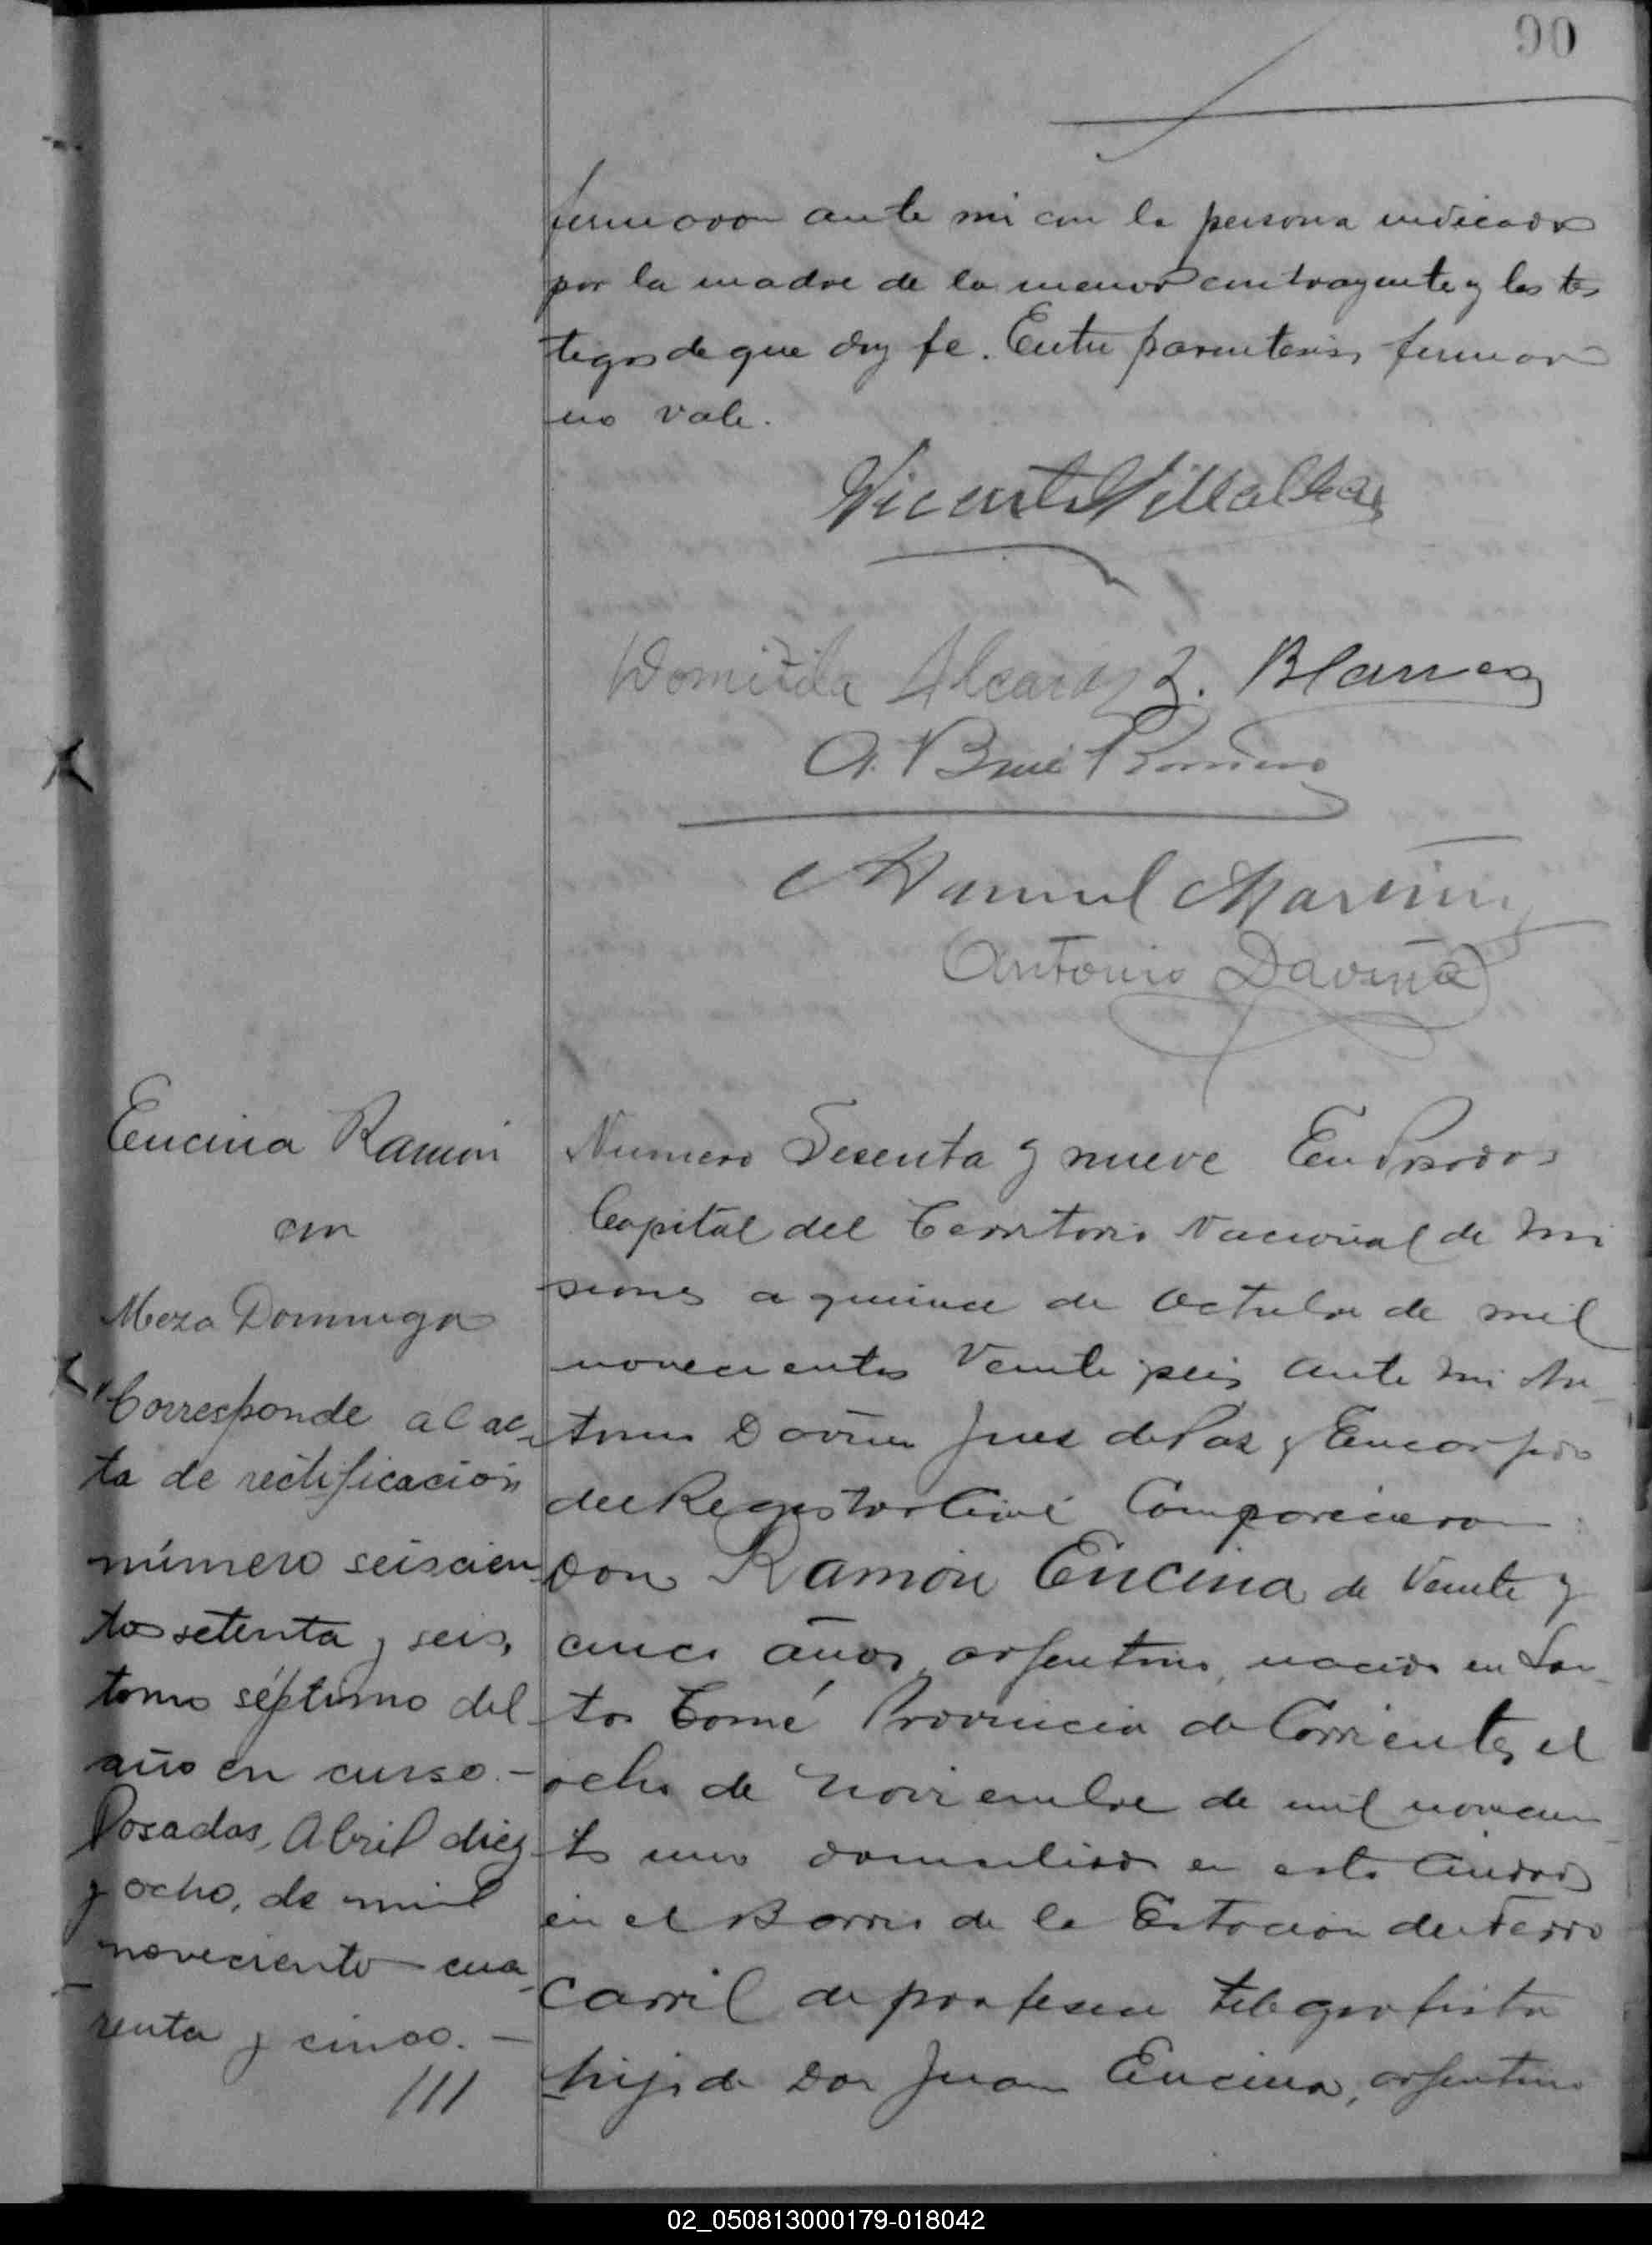 90
firmaron ante mi con la persona indicada
por la madre de la menor contrayente y los tes
tigos de que doy fe. Entre parentesis firmaron
no vale.
Vicente Villalba
Domitila Alcaraz
Blanes
A.
Manuel
Antonio Daviña
Encina Ramón
con
Meza Dominga
Corresponde al ac-
ta de rectificación
número seiscien-
tos setenta y seis,
tomo séptimo del
año en curso.-
Posadas, Abril diez
y ocho, de mil
noveciento cua-
renta y cinco.-
///
Numero Sesenta y nueve En Posadas
Capital del Territorio Nacional de Mi
siones a quince de Octubre de mil
novecientos Veinte seis ante mi An-
tonio Daviña Juez de Paz y Encargado
del Registro Civil Comparecieron
Don Ramón Encina de Veinte y
cinco años argentino, nacido en San-
to Tomé Provincia de Corrientes el
ocho de Noviembre de mil novecien-
to uno domiciliado en esta Ciudad
en el Barrio de la Estación del Ferro
carril de profesion telegrafista
hijo de Don Juan Encina, argentino
02_050813000179-018042